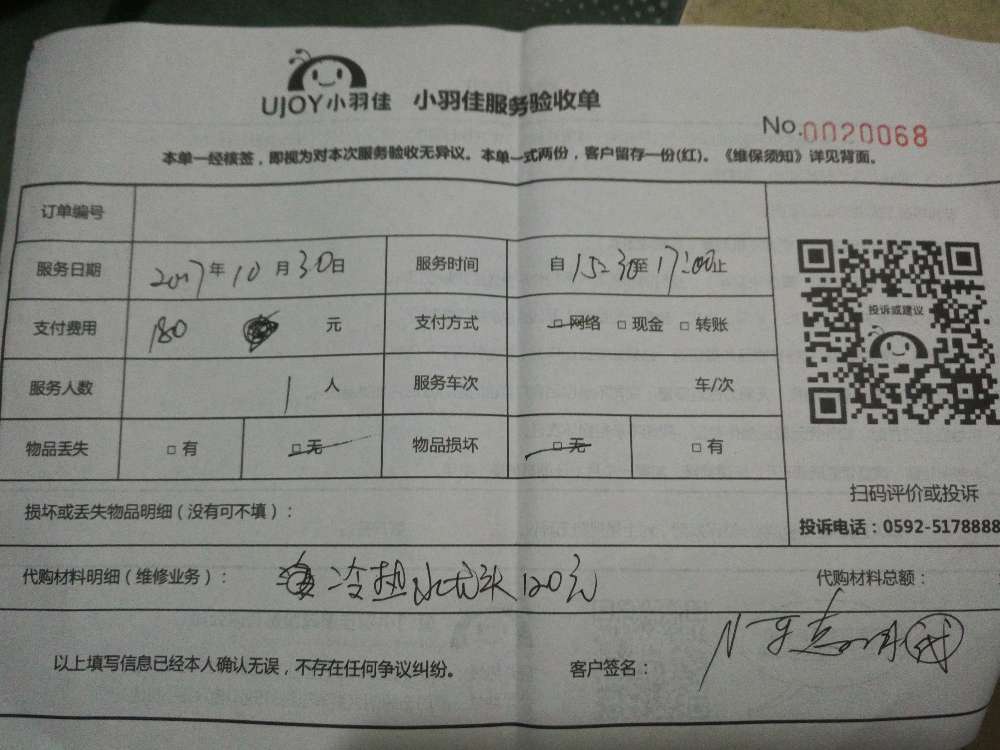 UJOY小羽佳 小羽佳服务验收单
No.0020068
本单一经核签，即视为对本次服务验收无异议。本单一式两份，客户留存一份(红)。《维保须知》详见背面。
订单编号
服务日期 2017年10月30日 服务时间 自15:30至17:00止
支付费用 180 元 支付方式 □ 网络 □ 现金 □ 转账
投诉或建议
服务人数 1 人 服务车次 车/次
物品丢失 □ 有 □ 无 物品损坏 □ 无 □ 有
扫码评价或投诉
损坏或丢失物品明细（没有可不填）：
投诉电话：0592-5178888
代购材料明细（维修业务）： 冷热水龙头120元 代购材料总额：
以上填写信息已经本人确认无误，不存在任何争议纠纷。 客户签名：